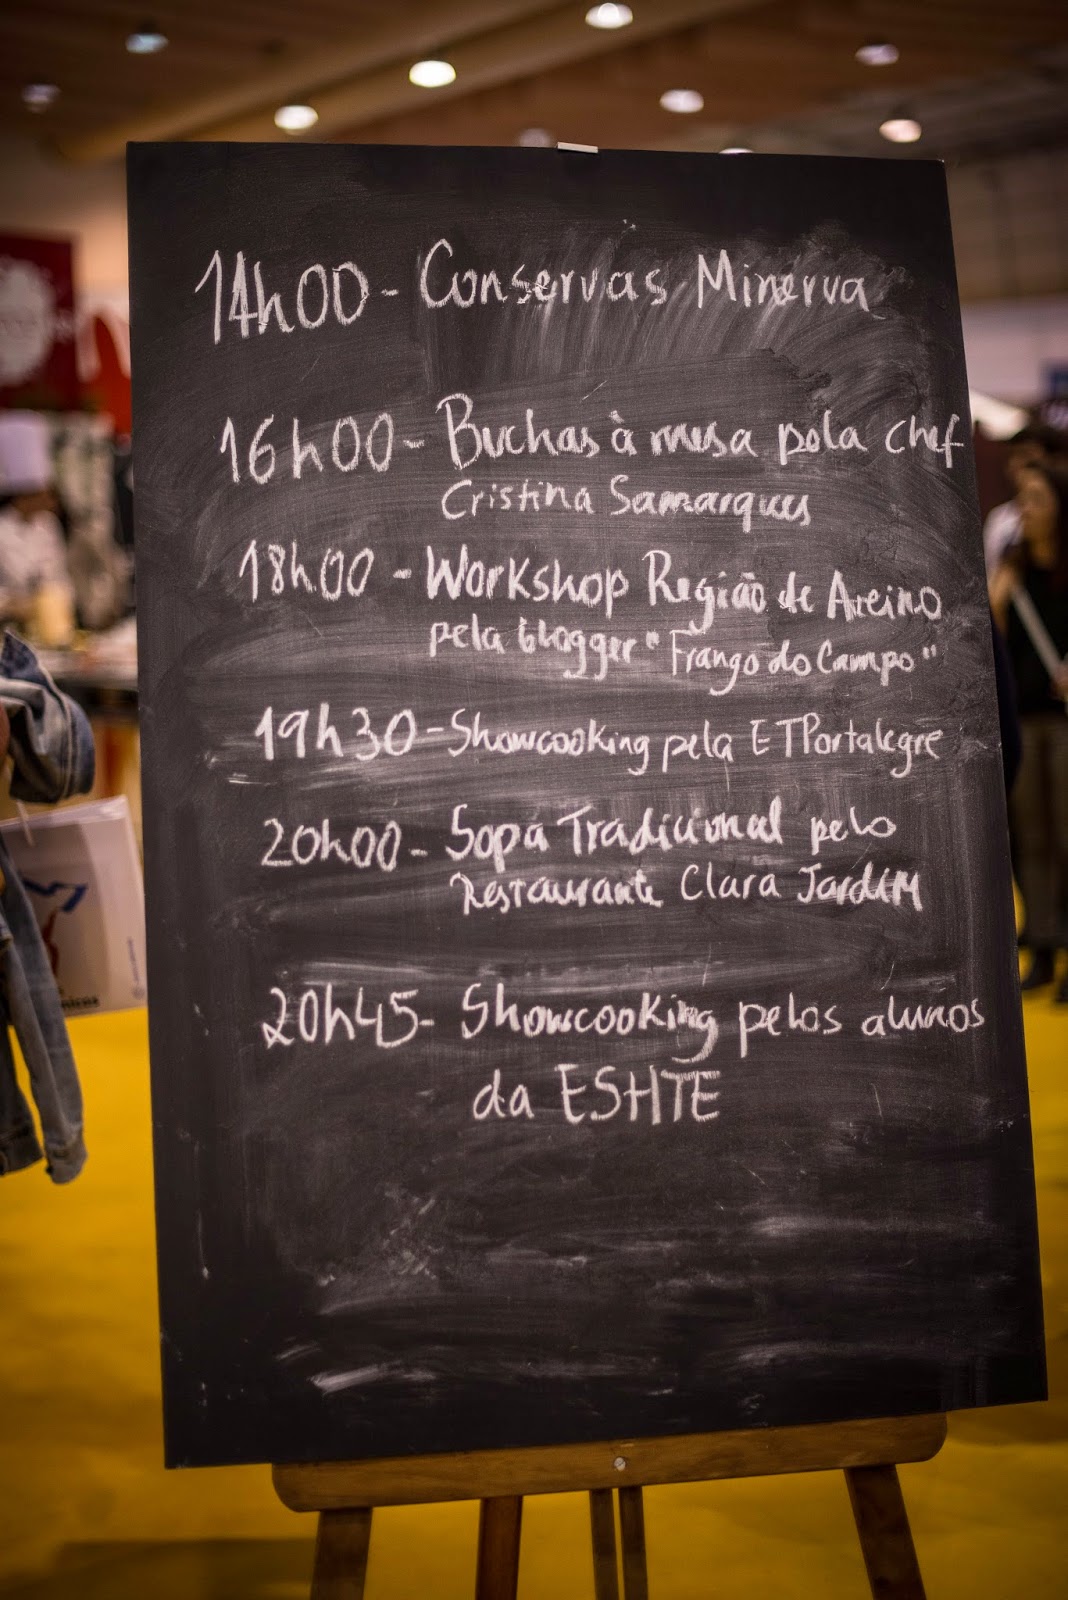 14h00 - Conservas Minerva
16h00 - Buchas à mesa pela chef
Cristina Samarques
18h00 - Workshop Região de Aveiro
pela blogger "Frango do Campo"
19h30 - Showcooking pela ETPortalegre
20h00 - Sopa Tradicional pelo
Restaurante Clara Jardim
20h45 - Showcooking pelos alunos
da ESHTE